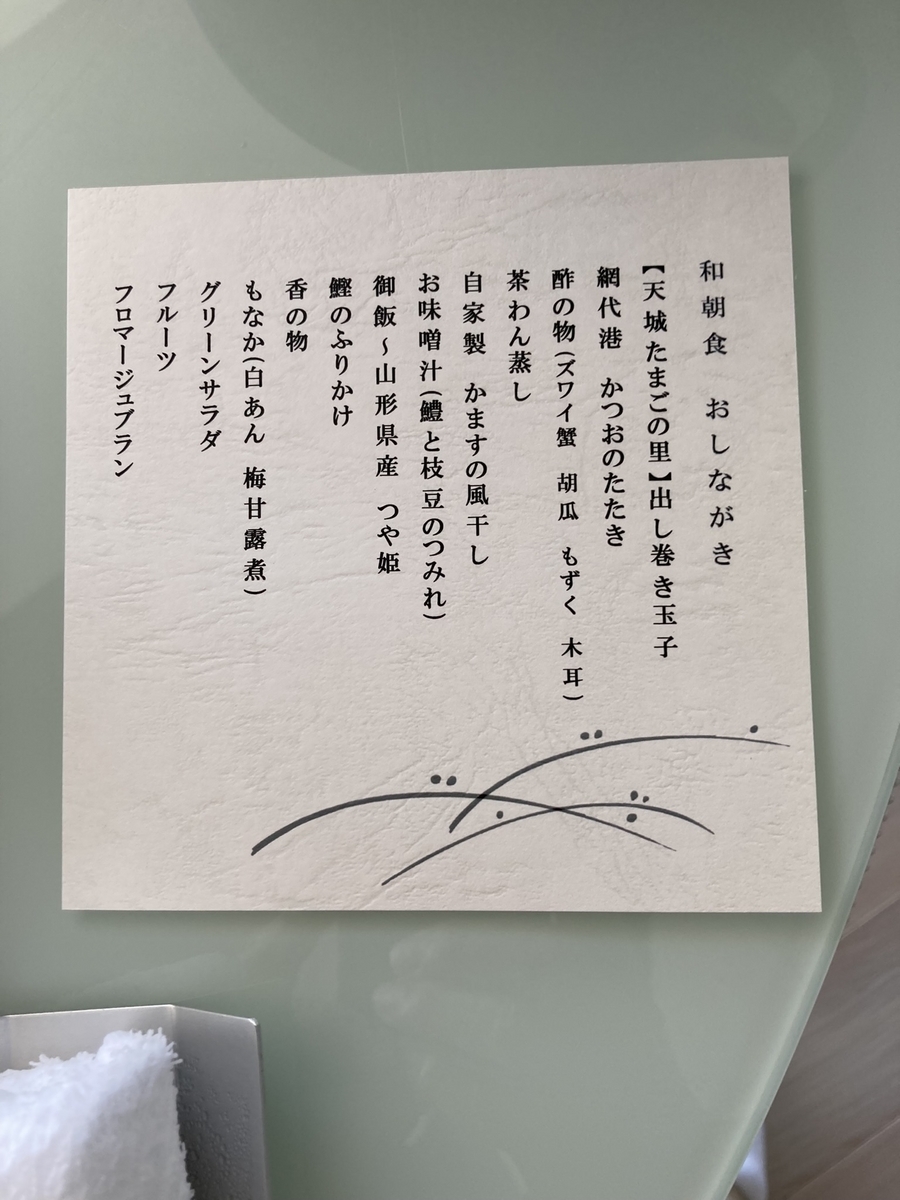 和朝食　おしながき
【天城たまごの里】出し巻き玉子
網代港　かつおのたたき
酢の物(ズワイ蟹　胡瓜　もずく　木耳)
茶わん蒸し
自家製　かますの風干し
お味噌汁(鱧と枝豆のつみれ)
御飯～山形県産　つや姫
鰹のふりかけ
香の物
もなか(白あん　梅甘露煮)
グリーンサラダ
フルーツ
フロマージュブラン